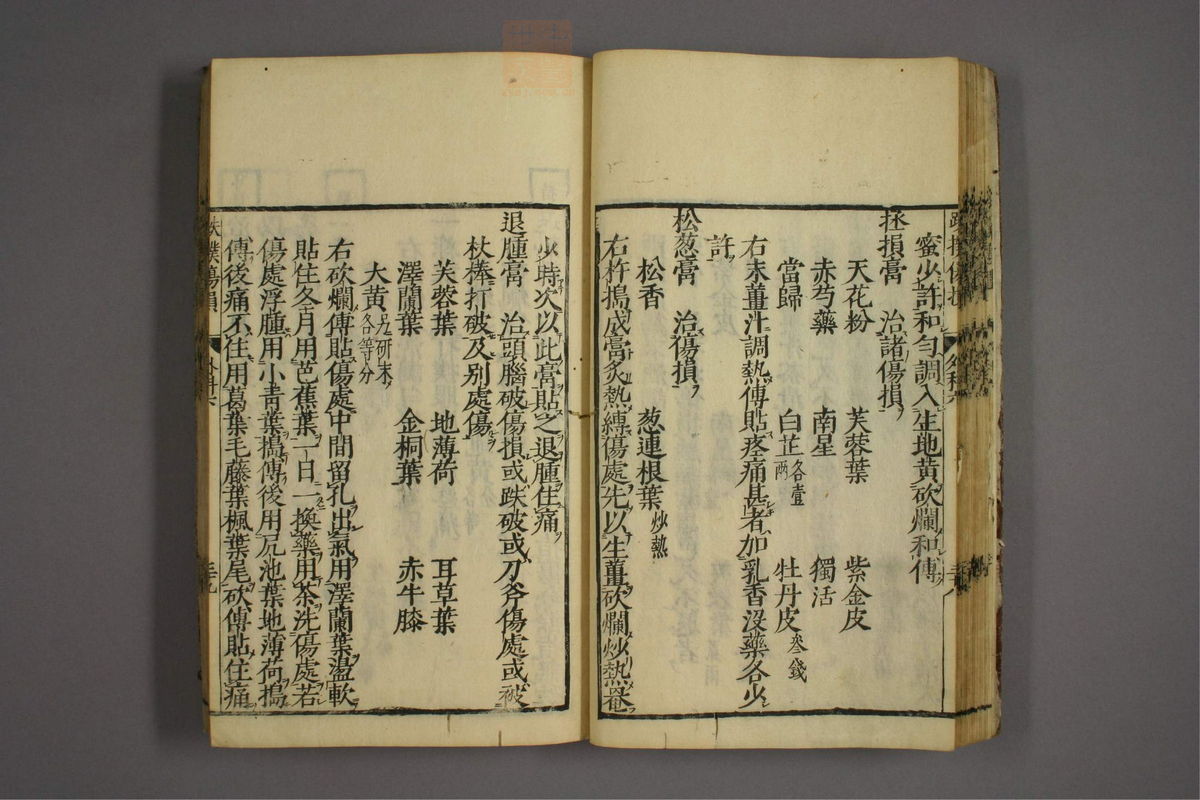 蜜少許和勻調入生地黃砍爛和傅
拯損膏　治諸傷損
天花粉　芙蓉葉　紫金皮
赤芍藥　南星　獨活
當歸　白芷各壹兩　牡丹皮叁錢
右末薑汁調熱傅貼疼痛甚者加乳香沒藥各少
許
松葱膏　治傷損
松香　葱連根葉炒熱
右杵搗成膏炙熱縛傷處先以生薑砍爛炒熱罨
少時次以此膏貼之退腫住痛
退腫膏　治頭腦破傷損或跌破或刀斧傷處或被
杖棒打破及別處傷
芙蓉葉　地薄荷　耳草葉
澤蘭葉　金桐葉　赤牛膝
大黃另研末各等分
右砍爛傅貼傷處中間留孔出氣用澤蘭葉盪軟
貼住冬月用芭蕉葉一日一換藥用茶洗傷處若
傷處浮腫用小青葉搗傅後用尻池葉地薄荷搗
傅後痛不住用葛葉毛藤葉楓葉尾砍傅貼住痛
跌撲傷損　外科六　三九